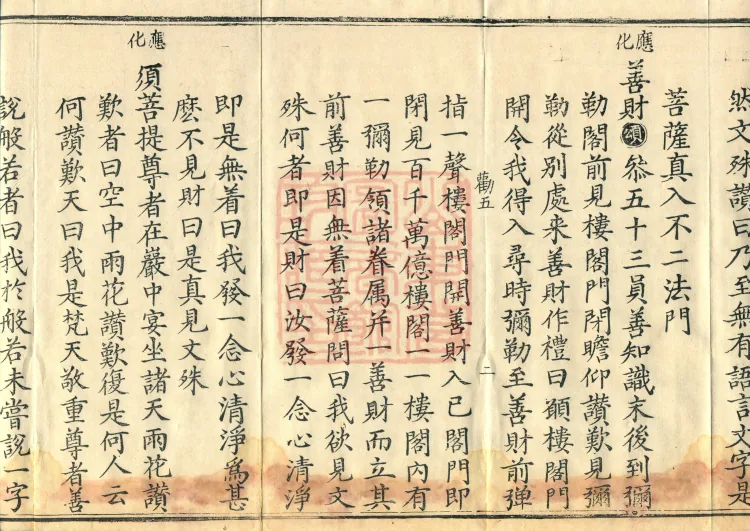 然文殊讚曰乃至無有語言文字是
菩薩真入不二法門
應化
善財頌叅五十三員善知識末後到彌
勒閣前見樓閣門閉瞻仰讚歎見彌
勒從別處来善財作禮曰願樓閣門
開令我得入尋時彌勒至善財前弹
勸五
二
指一聲樓閣門開善財入已閣門即
閉見百千萬億樓閣一一樓閣內有
一彌勒領諸眷属并一善財而立其
前善財因無着菩薩問曰我欲見文
殊何者即是財曰汝發一念心清淨
即是無着曰我發一念心清淨爲甚
麽不見財曰是真見文殊
應化
須菩提尊者在巖中宴坐諸天雨花讚
歎者曰空中雨花讚歎復是何人云
何讚歎天曰我是梵天敬重尊者善
說般若者曰我於般若未嘗說一字